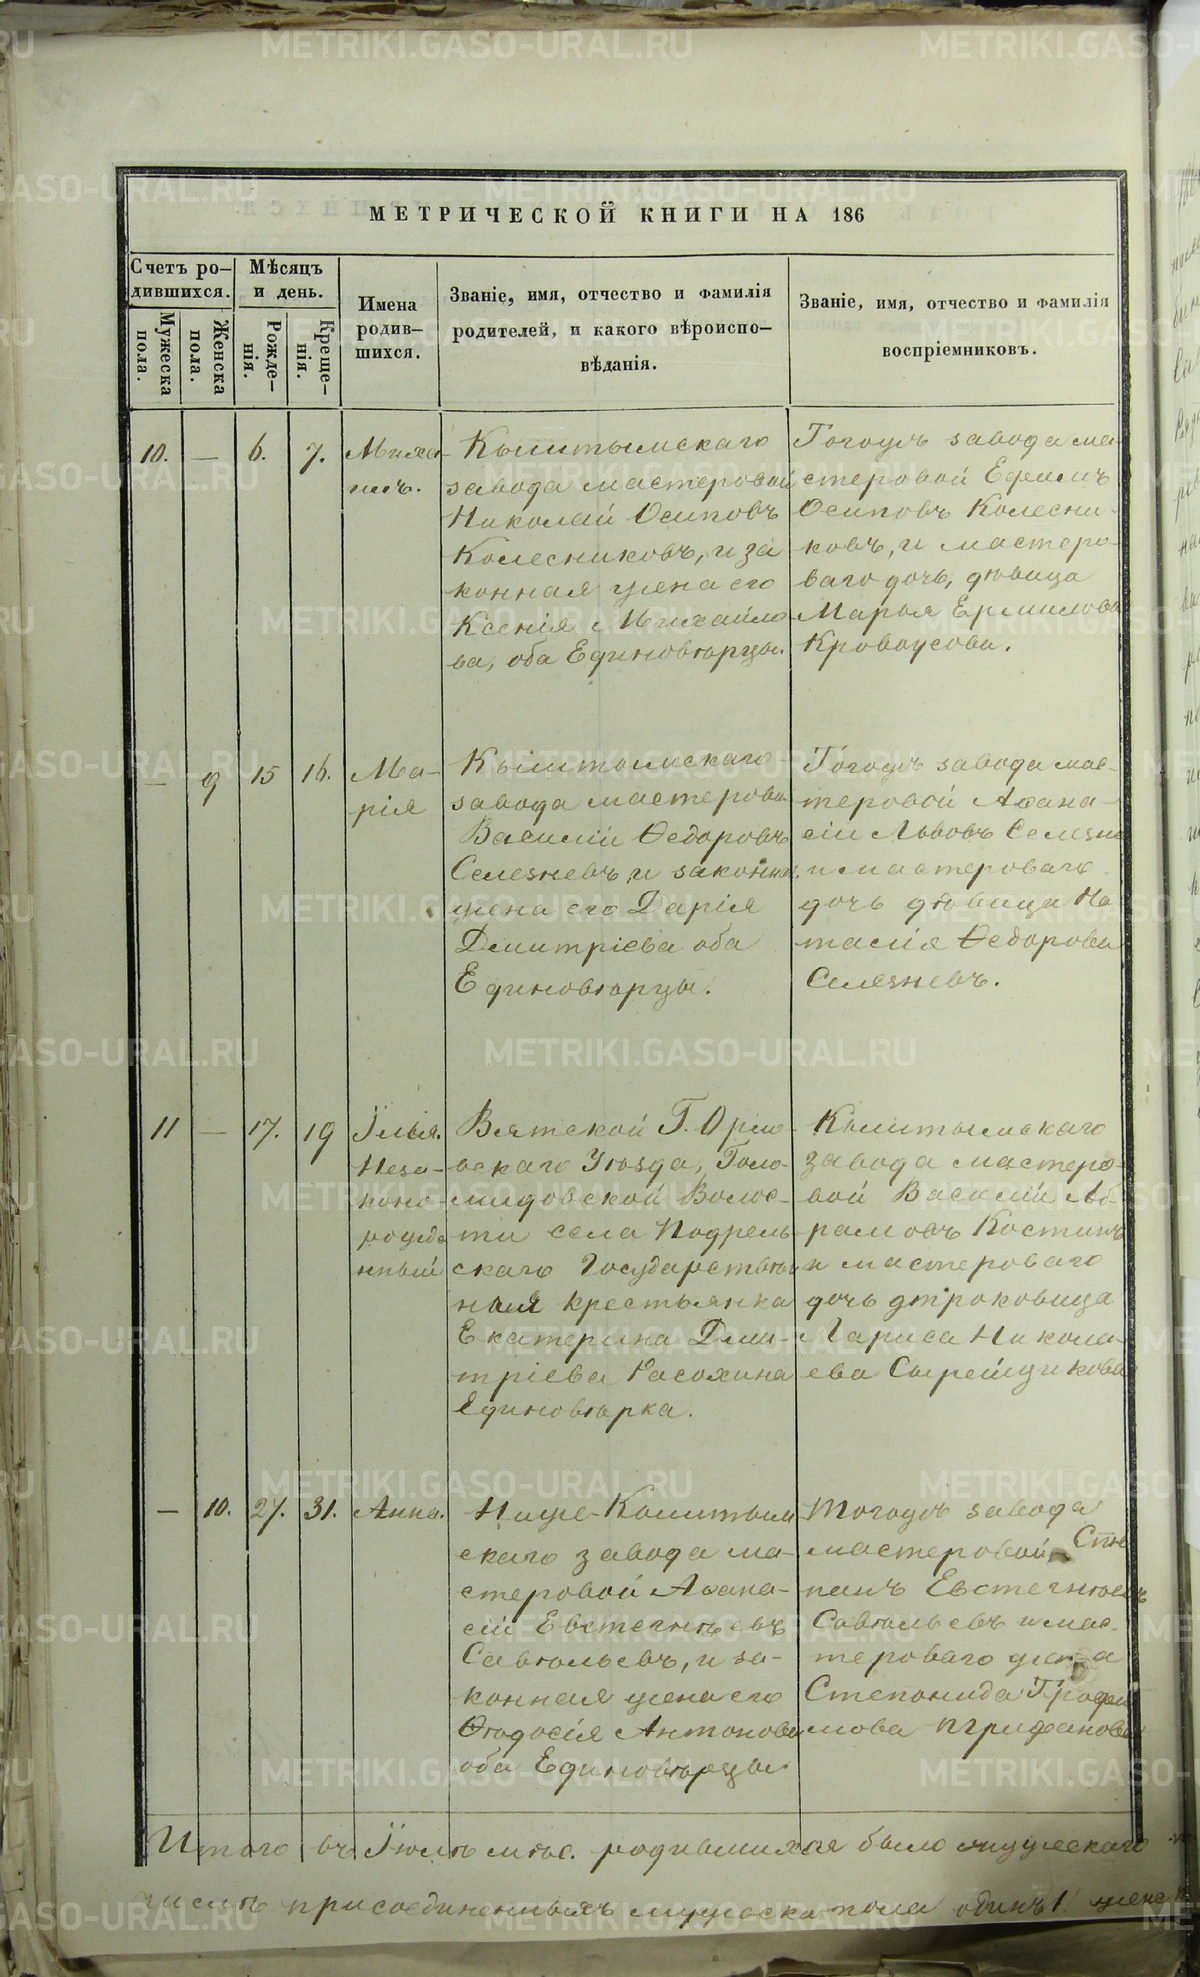 МЕТРИЧЕСКОЙ КНИГИ НА 186
Счетъ ро-
дившихся.
Мужеска
пола.
Женска
пола.
Мѣсяцъ
и день.
Рожде-
нія.
Креще-
нія.
Имена
родив-
шихся.
Званіе, имя, отчество и фамилія
родителей, и какого вѣроиспо-
вѣданія.
Званіе, имя, отчество и фамилія
воспріемниковъ.
10. — 6. 7.
Михаи
илъ.
Кыштымскаго
завода мастеровой
Николай Осиповъ
Колесниковъ, и за
конная жена его
Ксенія Михайло
ва, оба Единовѣрцы.
Тогожъ завода ма-
стеровой Ефимъ
Осиповъ Колесни-
ковъ, и мастеро-
ваго дочь, дѣвица
Марья Ермилова
Кривоусова.
— 9 15 16.
Ма-
рія
Кыштымскаго
завода мастеровой
Василій Ѳедоровъ
Селезневъ и законная
жена его Дарія
Дмитріева оба
Единовѣрцы.
Тогожъ завода мас-
теровой Аѳана-
сій Львовъ Селезне
и мастероваго
дочь дѣвица На
талія Ѳедорова
Селезневъ.
11 — 17. 19
Илья.
Неза-
коно-
рожде
нный
Вятской Г. Орло-
вскаго Уѣзда,
Волос-
ти села
скаго Государствен
ная крестьянка
Екатерина Дми-
тріева Расохина
Единовѣрка.
Кыштымскаго
завода мастеро-
вой Василій Аб-
рамовъ Костинъ
и мастероваго
дочь отроковица
Лариса Никола-
ева Сырейщикова
— 10. 27. 31.
Анна.
Ниже-Кыштым
скаго завода ма-
стеровой Аѳана-
сій Евстегнѣевъ
Савѣльевъ, и за-
конная жена его
Ѳеодосія Антонова
оба Единовѣрцы
Тогожъ завода
мастеровой Сте
панъ Евстегнѣевъ
Савѣльевъ и мас-
тероваго жена
Степонида Трофи
мова
Итого въ Іюлѣ мѣс. родившихся было мужескаго
числѣ присоединенныхъ мужеска пола одинъ 1 женс
METRIKI.GASO-URAL.RU